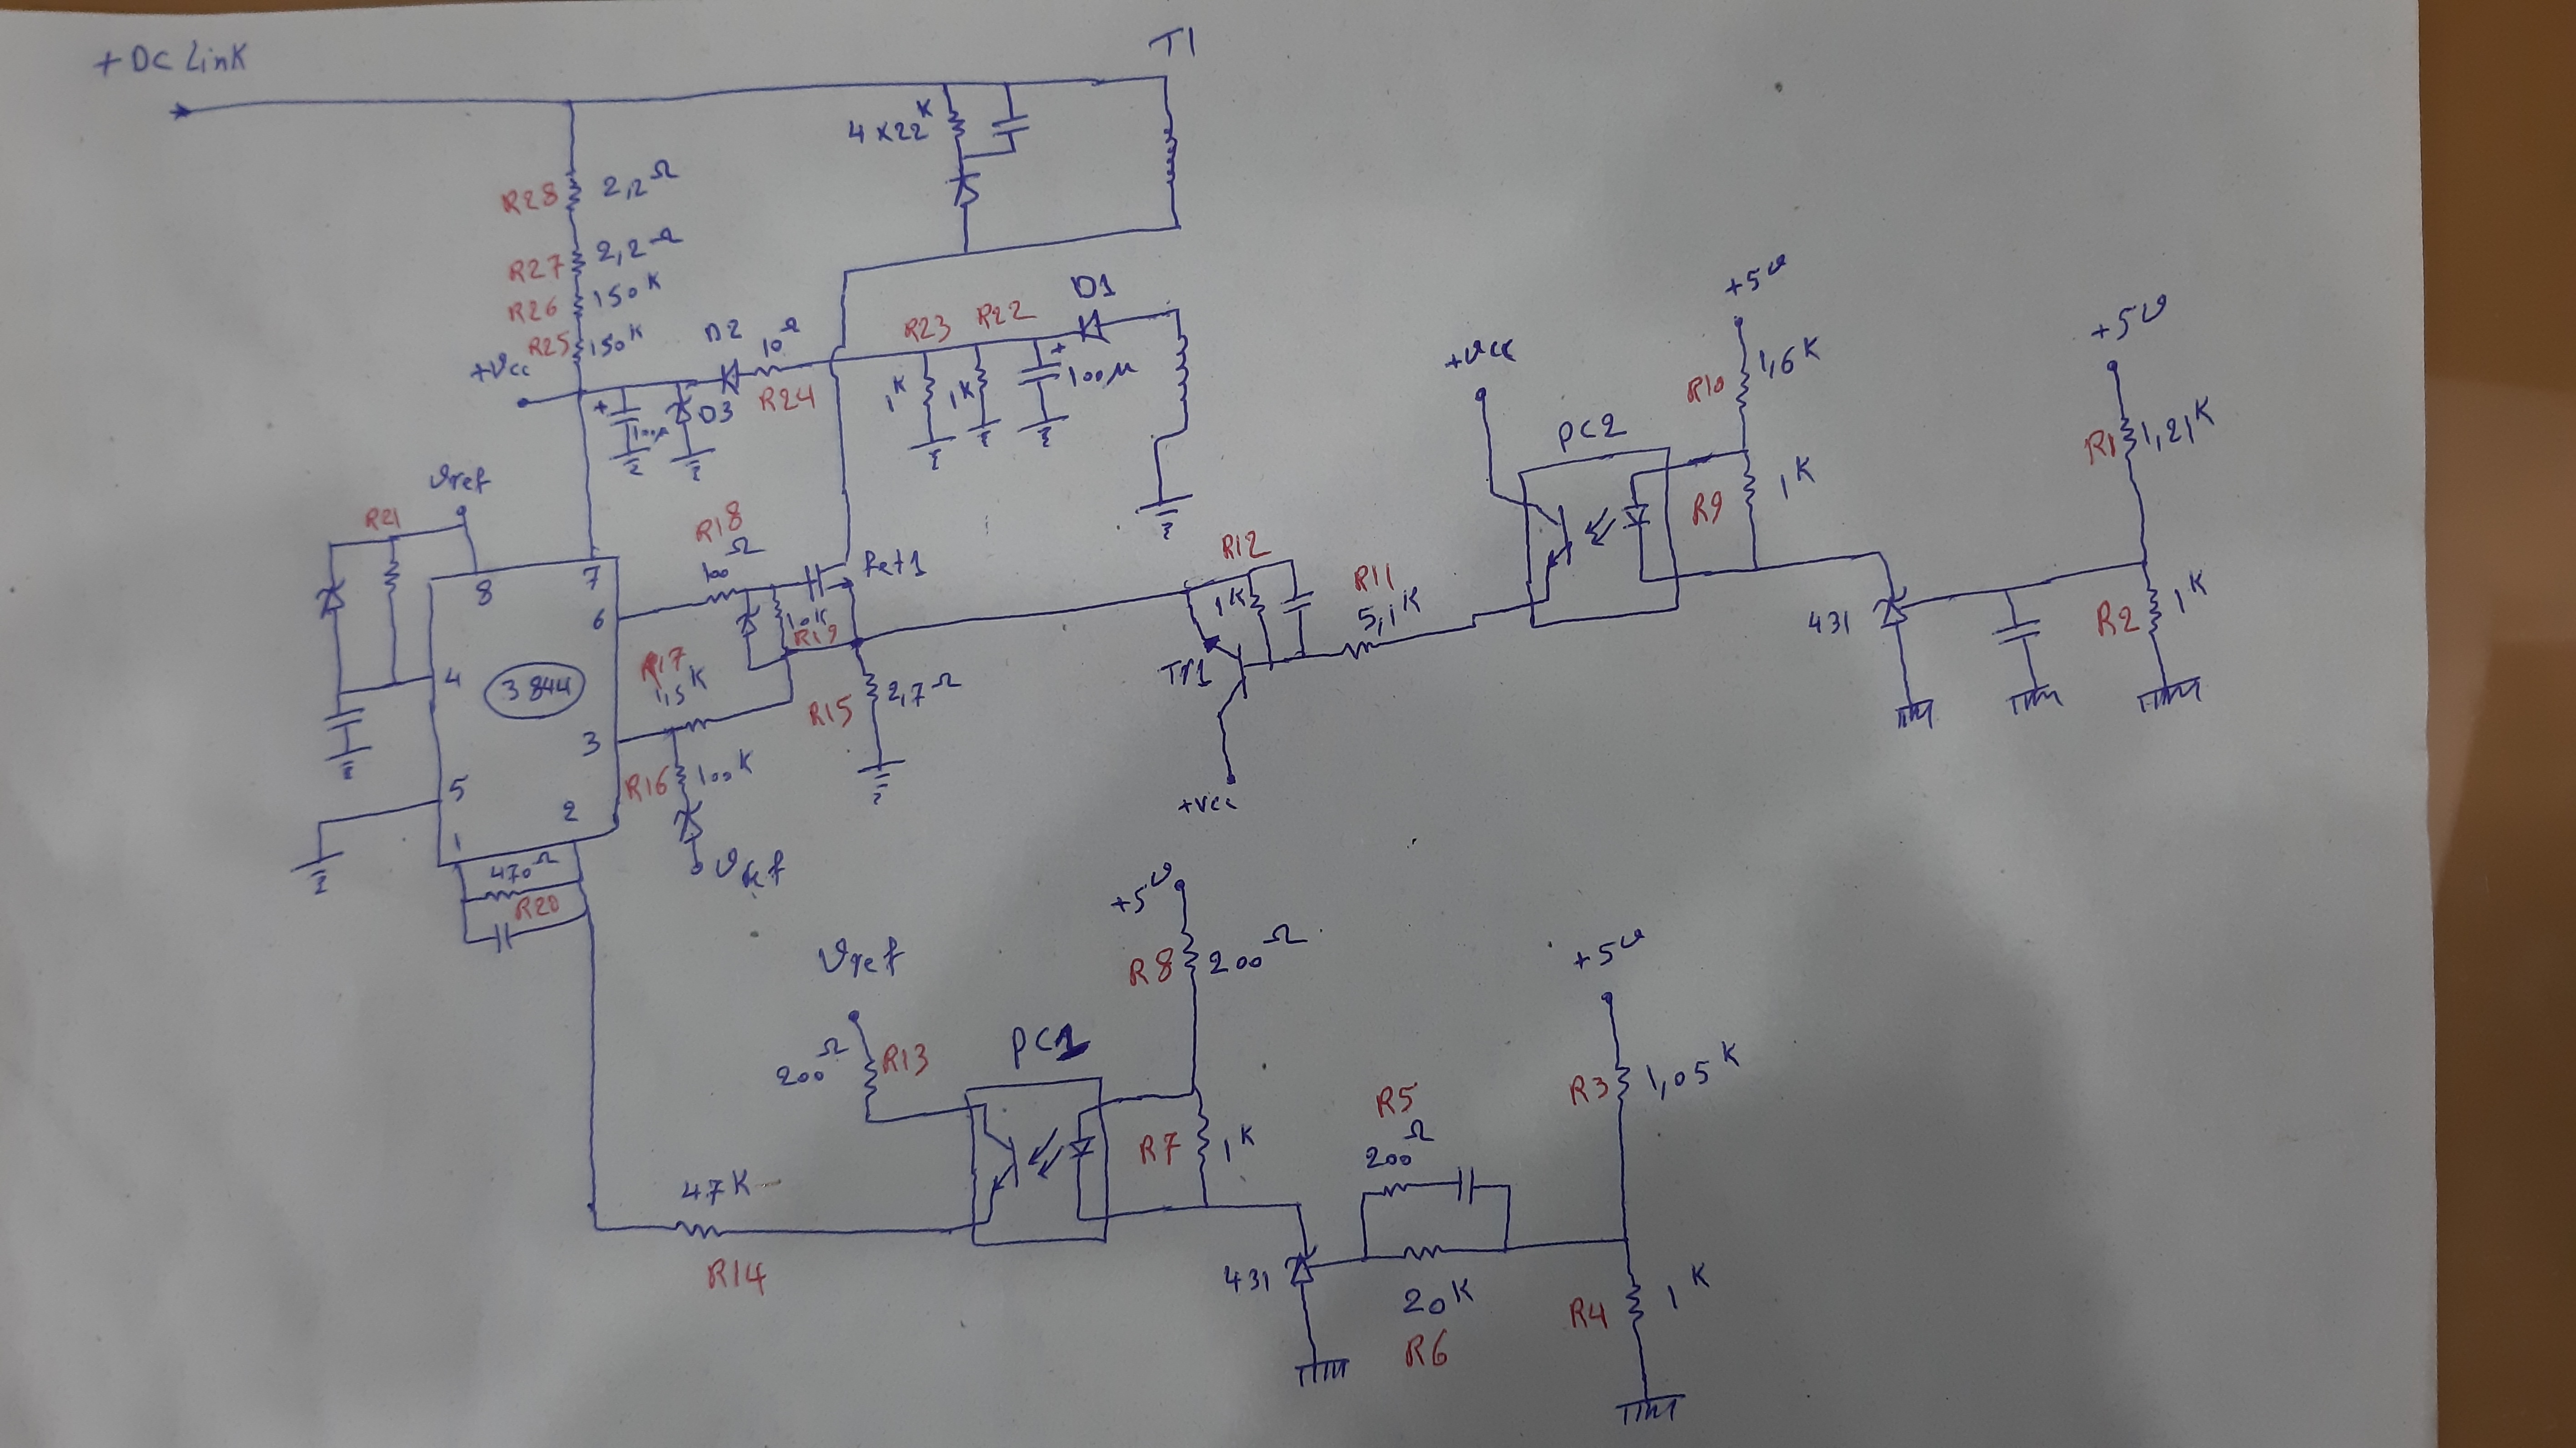 + DC Link
T1
4 x 22K
R28 2,2Ω
R27 2,2Ω
R26 150K
R25 150K
+Vcc
D2
10Ω
R24
R23
R22
D1
1K
1K
+
100µ
+
100µ
D3
Vref
R21
8
7
6
4
3844
3
5
2
1
R18
100Ω
Fet1
10K
R19
R17
1,5K
R15 2,7Ω
R16 100K
Vref
470Ω
R20
R12
1K
R11
5,1K
Tr1
+Vcc
+Vcc
PC2
+5V
R10 1,6K
R9 1K
431
+5V
R1 1,21K
R2 1K
Vref
200Ω R13
PC1
+5V
R8 200Ω
R7 1K
47K
R14
431
R5
200Ω
20K
R6
+5V
R3 1,05K
R4 1K